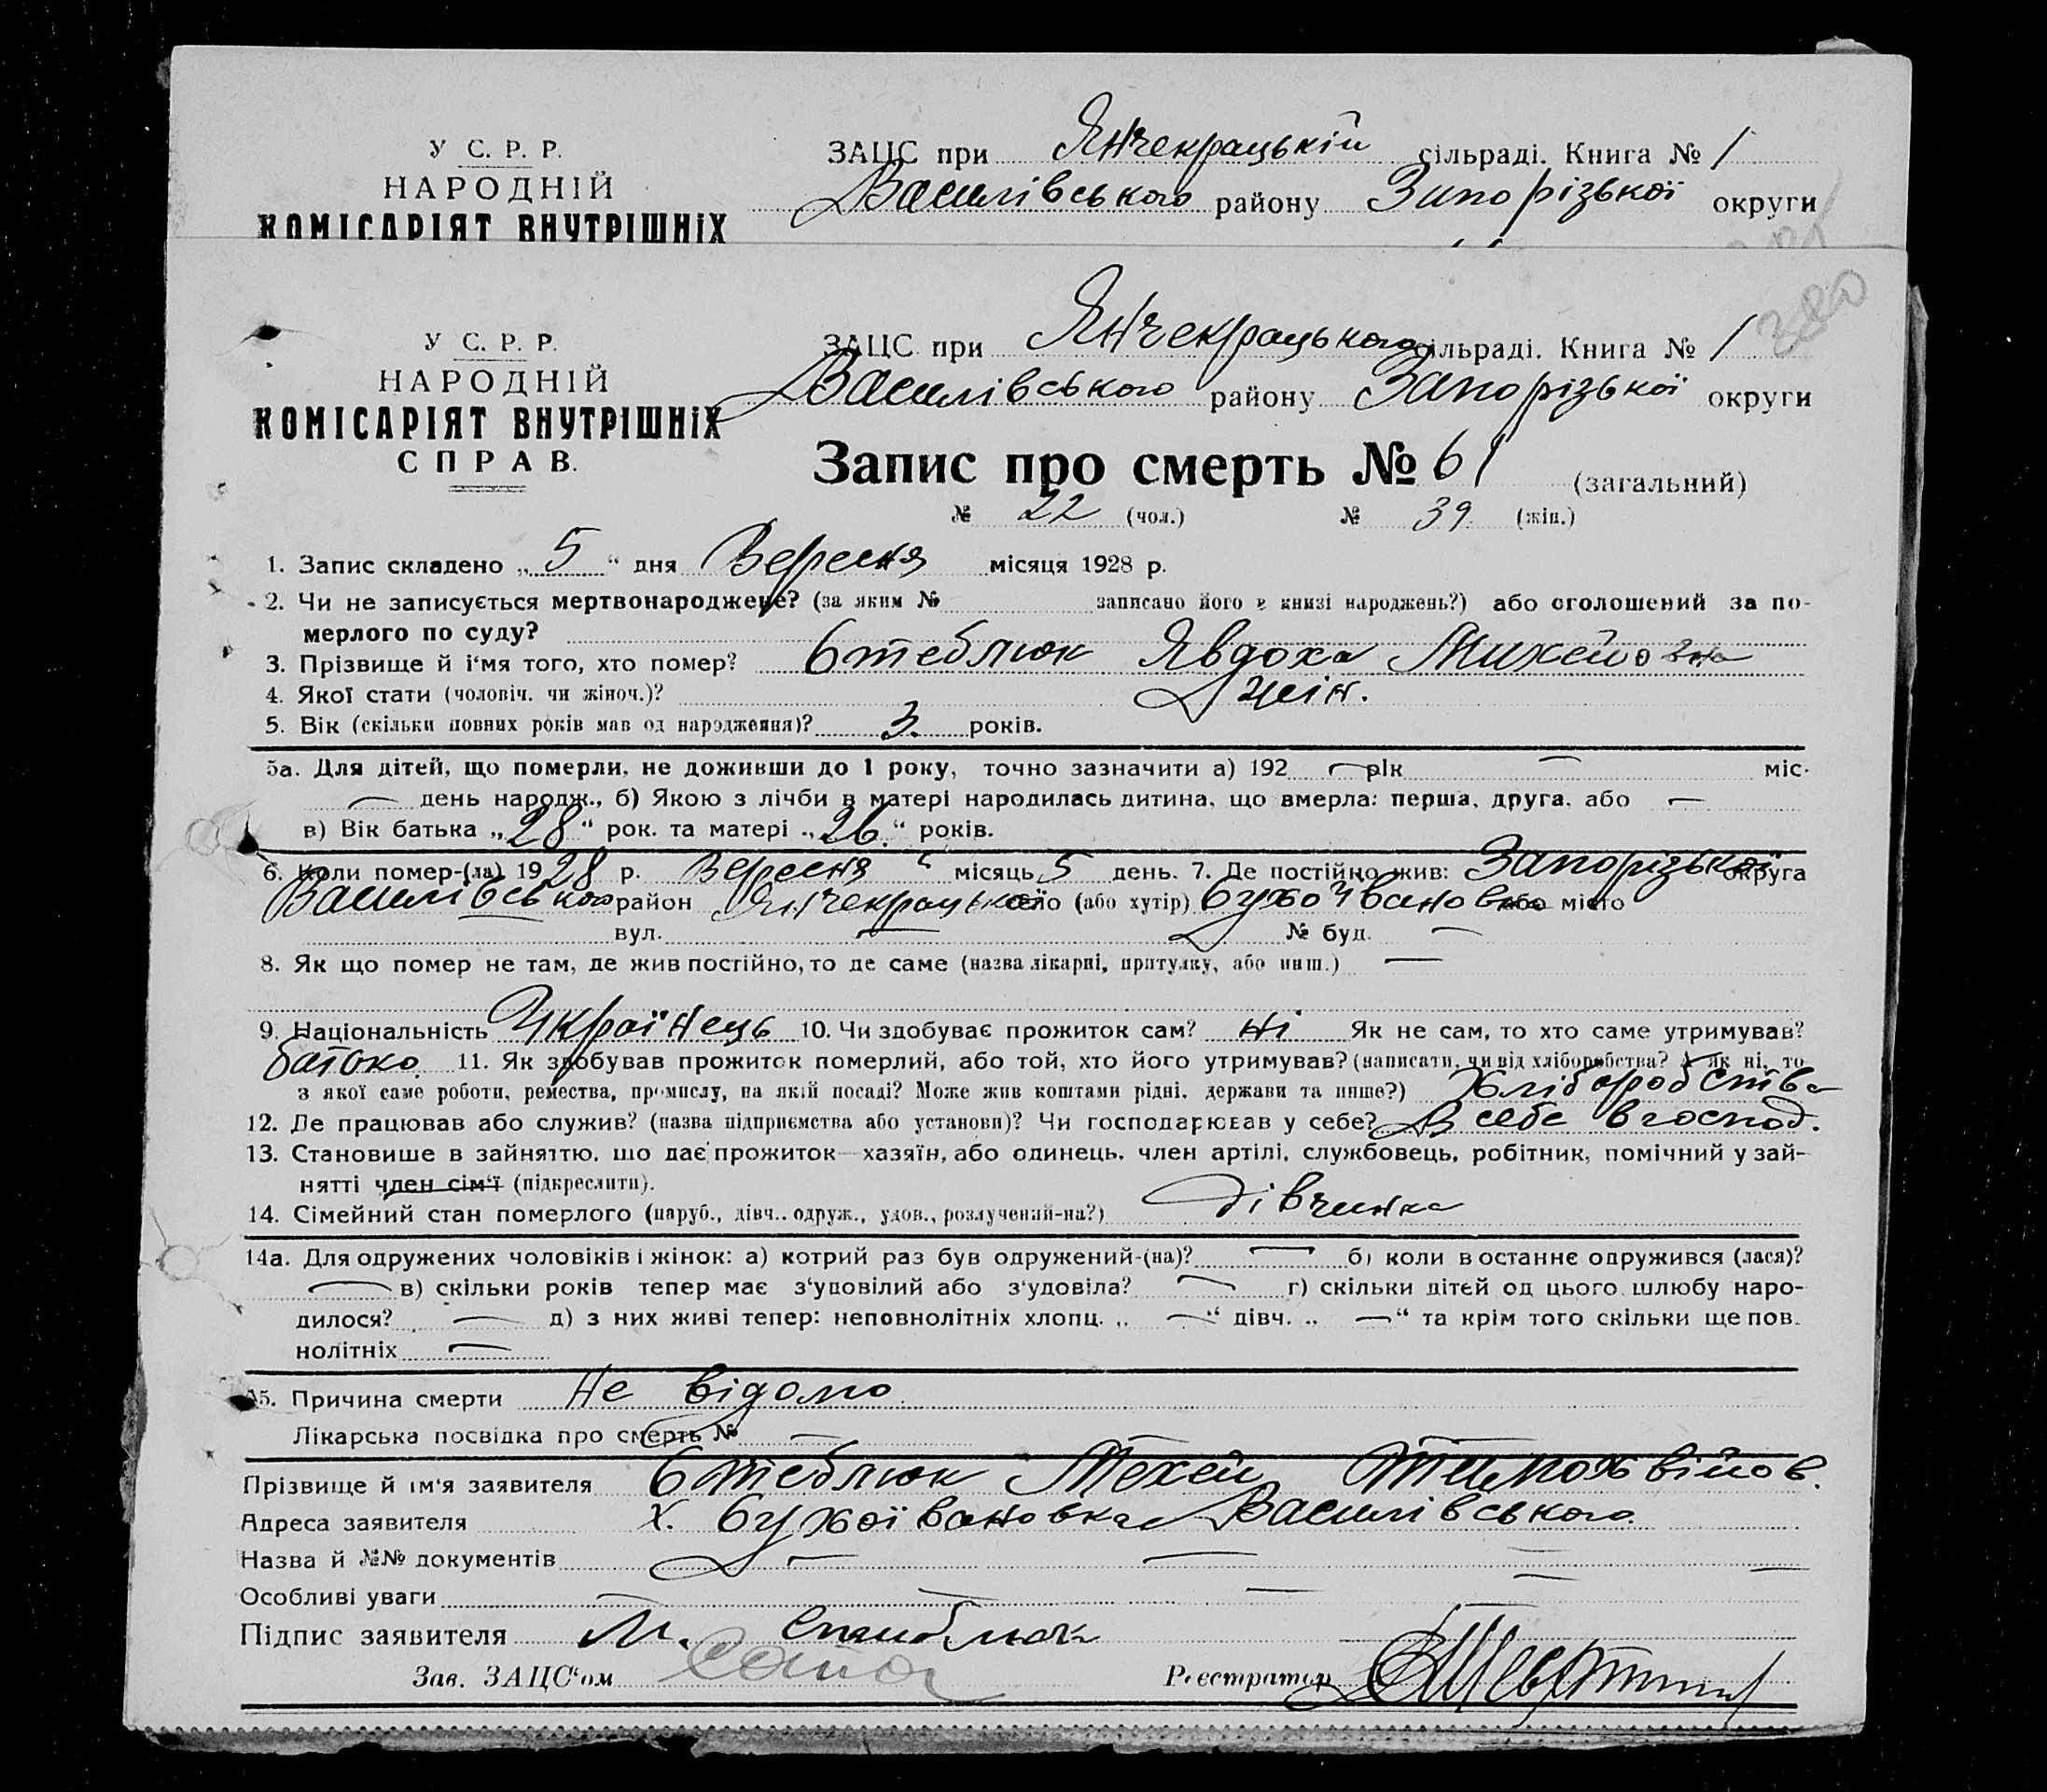 У С. Р. Р.
НАРОДНІЙ
КОМІСАРІЯТ ВНУТРІШНІХ
ЗАЦС при Янчекрацькій сільраді. Книга № 1
Василівського району Запорізької округи
380
У С. Р. Р.
НАРОДНІЙ
КОМІСАРІЯТ ВНУТРІШНІХ
СПРАВ.
ЗАЦС при Янчекрацького сільраді. Книга № 1
Василівського району Запорізької округи
Запис про смерть № 61 (загальний)
№ 22 (чол.) № 39 (жін.)
1. Запис складено „ 5 “ дня Вересня місяця 1928 р.
2. Чи не записується мертвонароджене? (за яким № записано його в книзі народжень?) або оголошений за по-
мерлого по суду?
3. Прізвище й і'мя того, хто помер? Стеблюк Явдоха Михейовна
4. Якої стати (чоловіч. чи жіноч.)? жін.
5. Вік (скільки повних років мав од народження)? 3 років.
5а. Для дітей, що померли, не доживши до 1 року, точно зазначити а) 192 — рік — міс.
— день народж., б) Якою з лічби в матері народилась дитина, що вмерла: перша, друга, або —
в) Вік батька „28“ рок. та матері „26“ років.
6. Коли помер-(ла) 1928 р. Вересня місяць 5 день. 7. Де постійно жив: Запорізької округа
Василівського район Янчекрацької село (або хутір) Сухоївановка або місто
вул. — № буд. —
8. Як що помер не там, де жив постійно, то де саме (назва лікарні, притулку, або инш.) —
9. Національність Українець 10. Чи здобуває прожиток сам? ні Як не сам, то хто саме утримував?
батько 11. Як здобував прожиток померлий, або той, хто його утримував? (написати, чи від хліборобства? А як ні, то
з якої саме роботи, ремества, промислу, на якій посаді? Може жив коштами рідні, держави та инше?) Хліборобства
12. Де працював або служив? (назва підприємства або установи)? Чи господарював у себе? В себе в господ.
13. Становище в зайняттю, що дає прожиток—хазяїн, або одинець, член артілі, службовець, робітник, помічний у зай-
нятті член сім'ї (підкреслити).
14. Сімейний стан померлого (паруб., дівч., одруж., удов., розлучений-на?) дівчинка
14а. Для одружених чоловіків і жінок: а) котрий раз був одружений-(на)? — б) коли в останнє одружився (лася)?
— в) скільки років тепер має з'удовілий або з'удовіла? — г) скільки дітей од цього шлюбу наро-
дилося? — д) з них живі тепер: неповнолітніх хлопц. „ —“ дівч. „ —“ та крім того скільки ще пов-
нолітніх —
15. Причина смерти Не відомо
Лікарська посвідка про смерть № —
Прізвище й ім'я заявителя Стеблюк Мехей Тимохвійов.
Адреса заявителя х. Сухоївановка Василівського
Назва й №№ документів — —
Особливі уваги —
Підпис заявителя М. Стеблюк
Зав. ЗАЦС'ом
Реєстратор